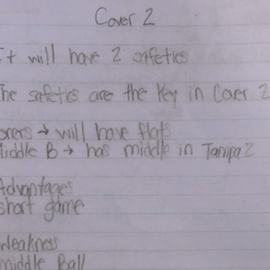 Cover 2
It will have 2 safeties
The safeties are the key in Cover 2
orers → will have flats
Middle B → has middle in Tampa 2
Advantages
short game
Weakness
middle Ball